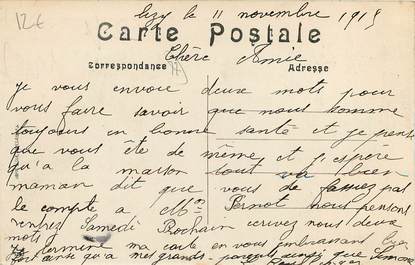 12€
Lizy le 11 novembre 1915
Carte Postale
Chère Amie
Correspondance
Adresse
je vous envoie deux mots pour
vous faire savoir que nous somme
toujours en bonne santé et je pense
que vous ête de même et j'espère
qu'a la maison tout va bien
maman dit que vous de fassiez pas
le compte a Mr Pernot nous pensons
rentrez Samedi Prochain ecrivez nous deux
mots
Je termine ma carte en vous embrassant
ainsi qu'a mes grands-parents ainsi que Simone